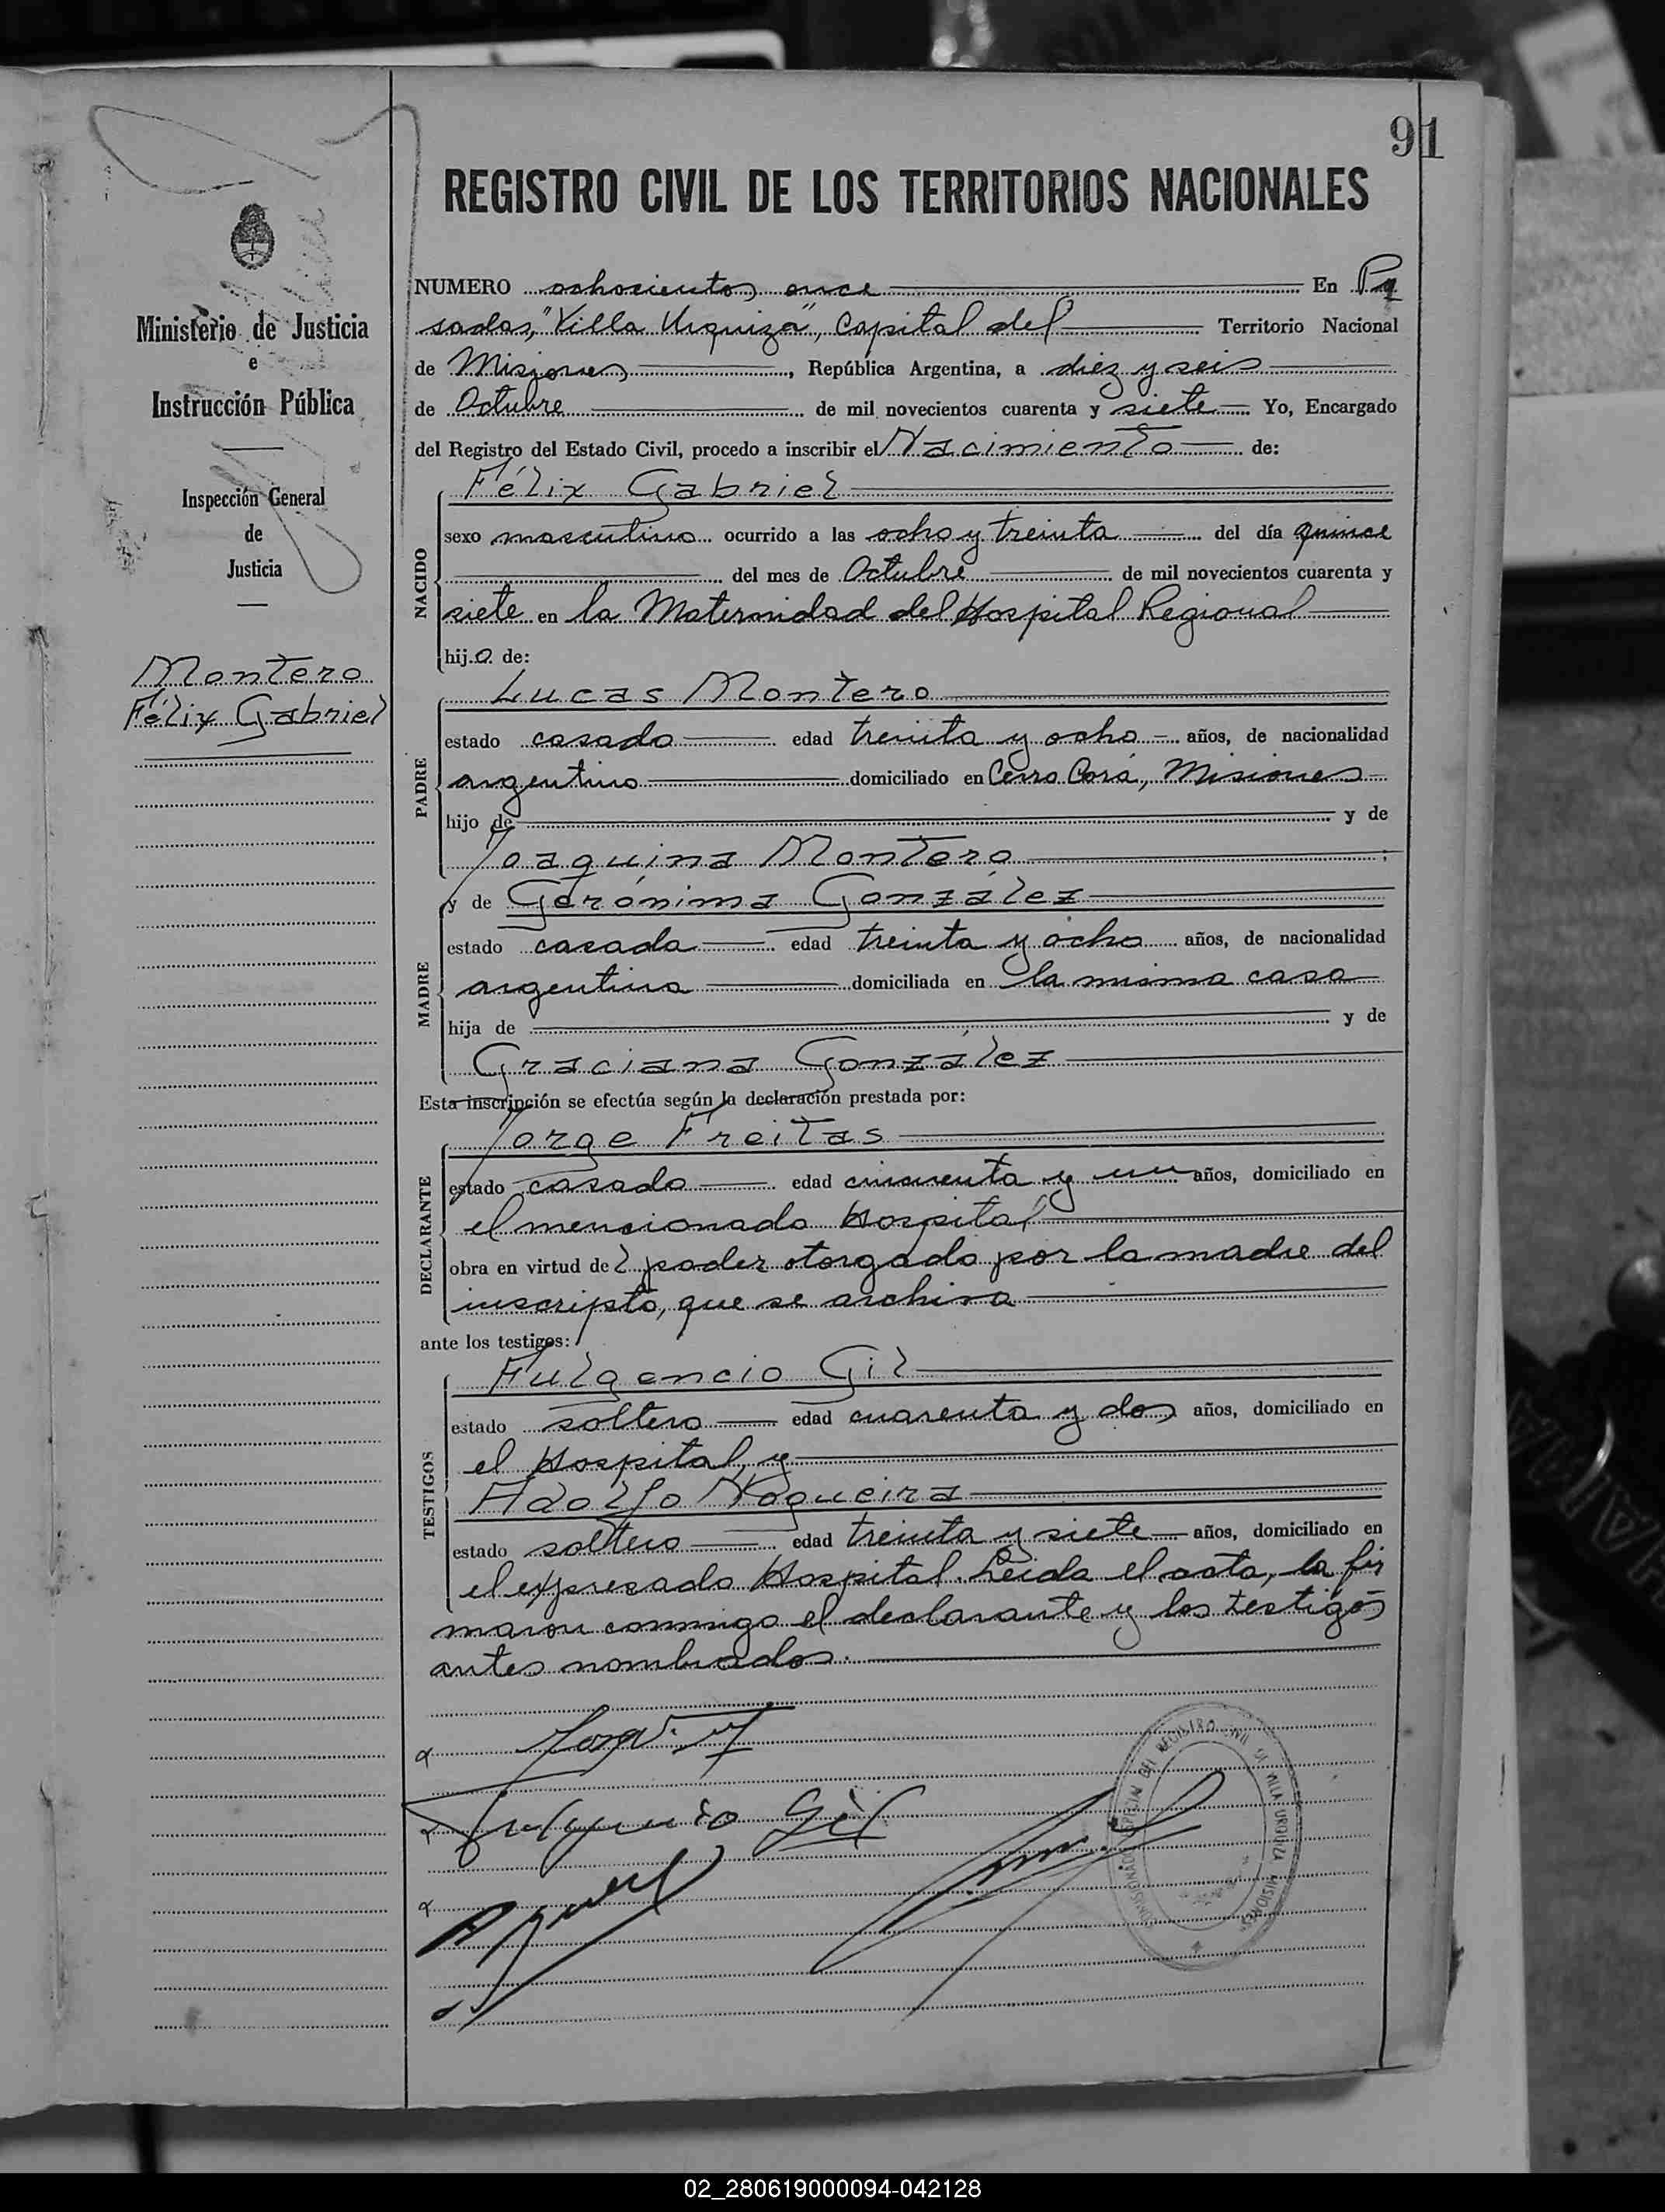 91
REGISTRO CIVIL DE LOS TERRITORIOS NACIONALES
Ministerio de Justicia
e
Instrucción Pública
Inspección General
de
Justicia
Montero
Félix Gabriel
NUMERO ochocientos once En Po
sadas, "Villa Urquiza", Capital del Territorio Nacional
de Misiones, República Argentina, a diez y seis
de Octubre de mil novecientos cuarenta y siete Yo, Encargado
del Registro del Estado Civil, procedo a inscribir el Nacimiento de:
NACIDO
Félix Gabriel
sexo masculino ocurrido a las ocho y treinta del día quince
del mes de Octubre de mil novecientos cuarenta y
siete en la Maternidad del Hospital Regional
hijo de:
PADRE
Lucas Montero
estado casado edad treinta y ocho años, de nacionalidad
argentino domiciliado en Cerro Corá, Misiones
hijo de y de
Joaquina Montero;
MADRE
y de Gerónima González
estado casada edad treinta y ocho años, de nacionalidad
argentina domiciliada en la misma casa
hija de y de
Graciana González
Esta inscripción se efectúa según la declaración prestada por:
DECLARANTE
Jorge Freitas
estado casado edad cincuenta y un años, domiciliado en
el mencionado Hospital
obra en virtud del poder otorgado por la madre del
inscripto, que se archiva
ante los testigos:
TESTIGOS
Fulgencio Gil
estado soltero edad cuarenta y dos años, domiciliado en
el Hospital, y
Adolfo Nogueira
estado soltero edad treinta y siete años, domiciliado en
el expresado Hospital. Leída el acta, la fir
maron conmigo el declarante y los testigos
antes nombrados.
Fulgencio Gil
REGISTRO CIVIL VILLA URQUIZA MISIONES
02_280619000094-042128